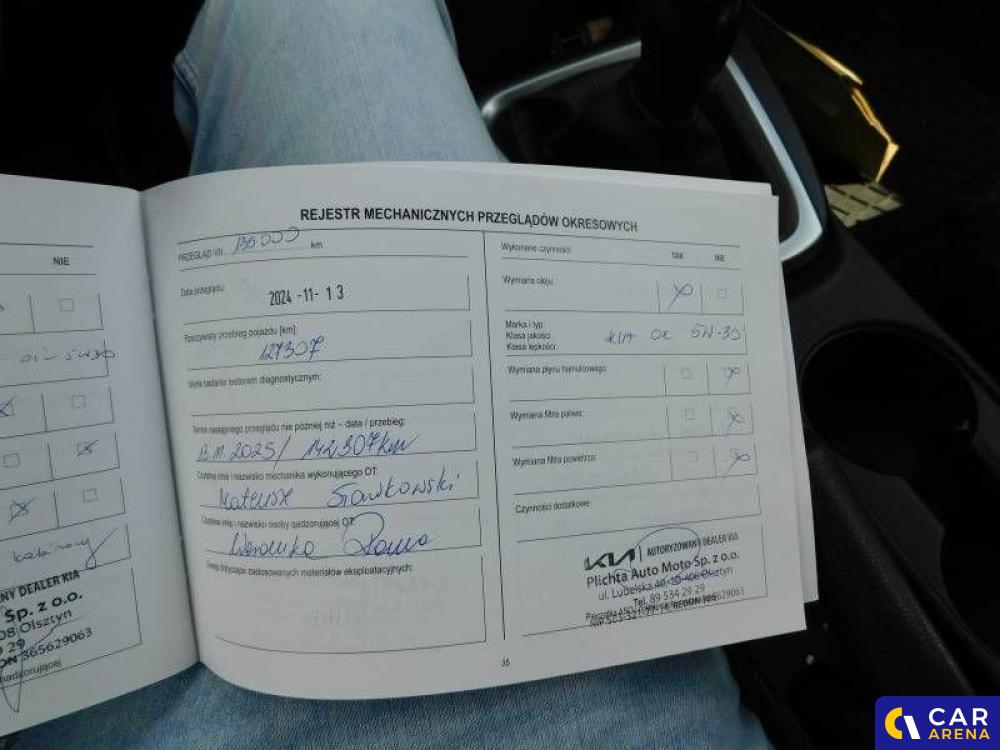 NIE
OIL 5W30
kabinowy
NY DEALER KIA
Sp. z o.o.
08 Olsztyn
9 29
ON 365629063
nadzorującej
REJESTR MECHANICZNYCH PRZEGLĄDÓW OKRESOWYCH
PRZEGLĄD VII km
Data przeglądu:
2024 -11- 13
Rzeczywisty przebieg pojazdu [km]:
127307
Wynik badania testerem diagnostycznym:
Termin następnego przeglądu nie później niż - data / przebieg:
13.11.2025 / 142307km
Czytelne imię i nazwisko mechanika wykonującego OT:
Mateusz
Czytelne imię i nazwisko osoby nadzorującej OT:
Weronika
Uwagi dotyczące zastosowanych materiałów eksploatacyjnych:
Wykonane czynności:
TAK NIE
Wymiana oleju:
Marka i typ:
Klasa jakości:
Klasa lepkości:
KIA 5W-30
Wymiana płynu hamulcowego:
Wymiana filtra paliwa:
Wymiana filtra powietrza:
Czynności dodatkowe:
KIA AUTORYZOWANY DEALER KIA
Plichta Auto Moto Sp. z o.o.
ul. Lubelska Olsztyn
Tel. 89 534 29 29
35
CAR
ARENA